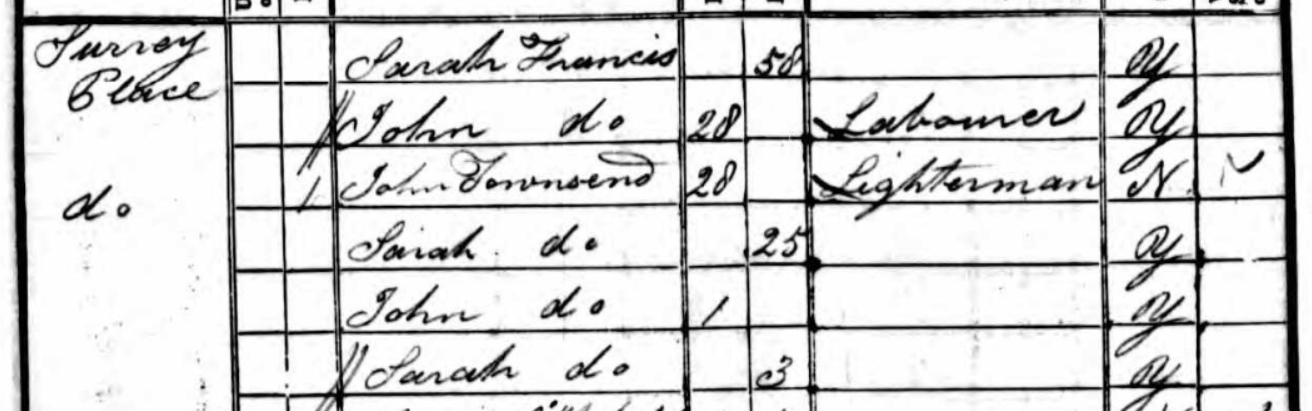 Surrey Place Sarah Francis 58 Y
// John do 28 Labourer Y
do 1 John Townsend 28 Lighterman N
Sarah do 25 Y
John do 1 Y
// Sarah do 3 Y